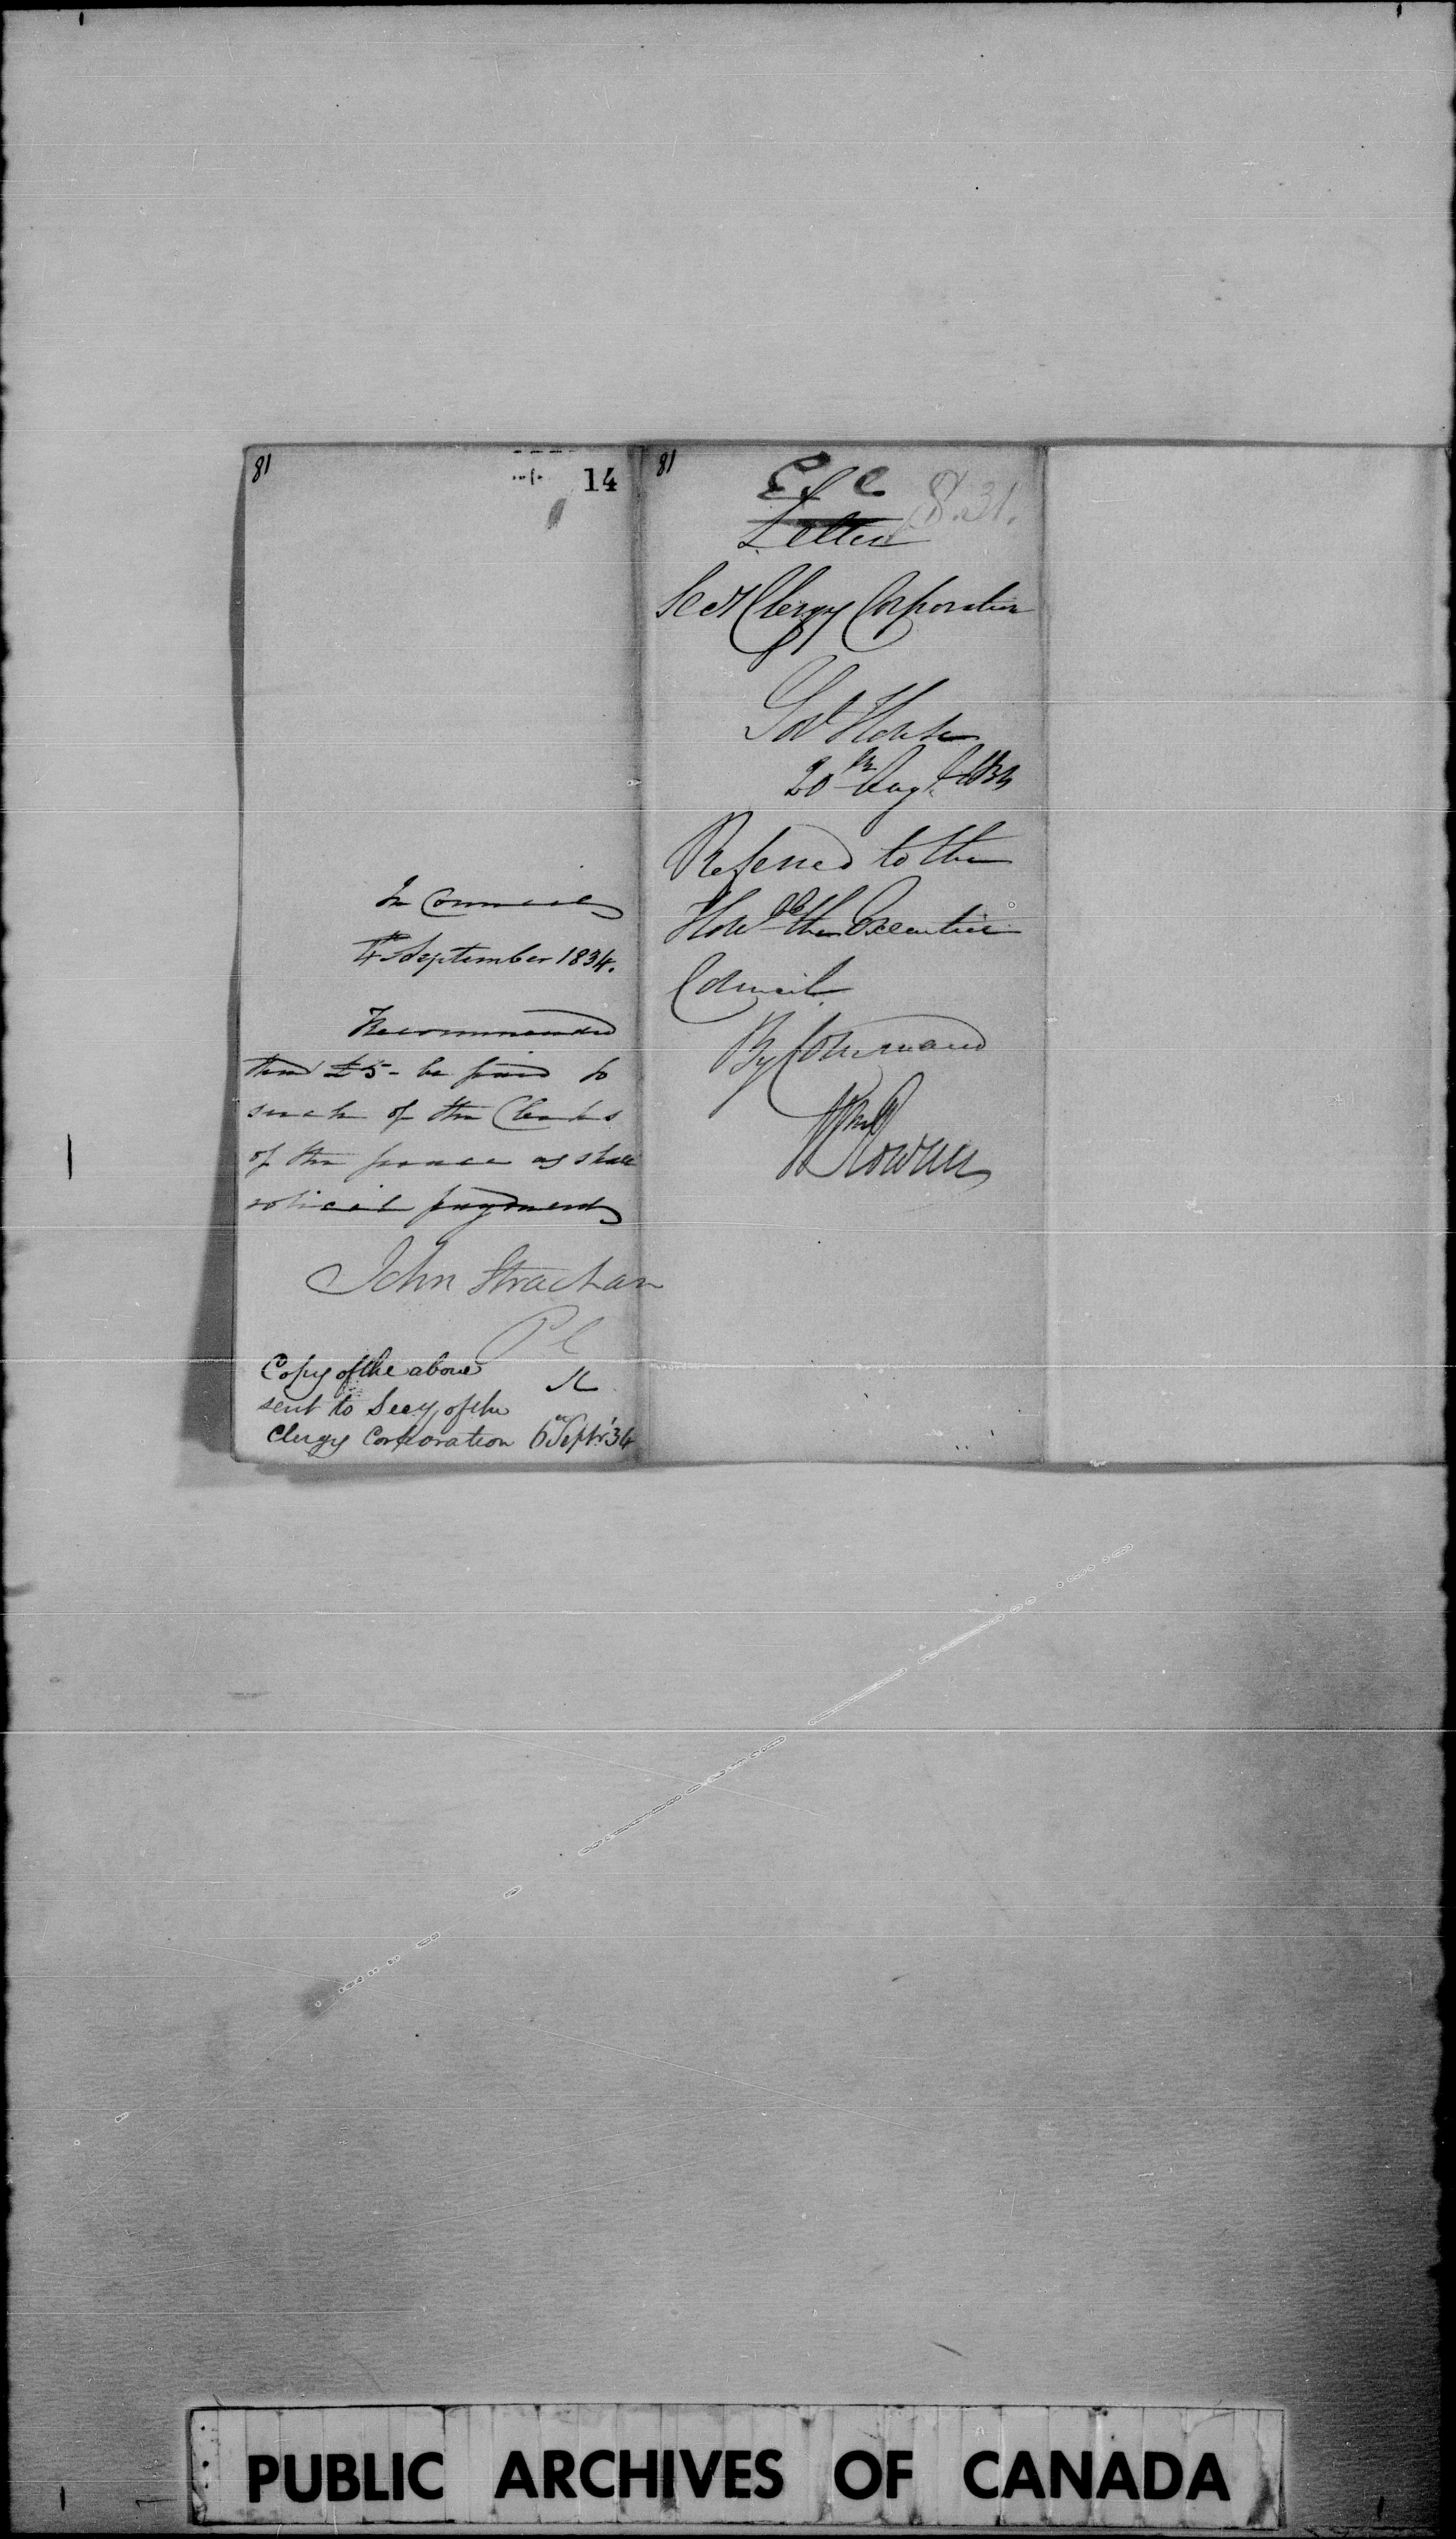 81
14
In Council
4th September 1834.
Recommended
that £5 - be paid to
such of the Clerks
of the peace as shall
solicit payment
John Strachan
P C
Copy of the above
sent to Secy of the
Clergy Corporation 6th Septr '34
81
E. C
8.31.
Letter
Clergy Corporation
Govt House
20th Augt 1834
Referred to the
Honble the Executive
Council.
By Command
Wm Rowan
PUBLIC ARCHIVES OF CANADA